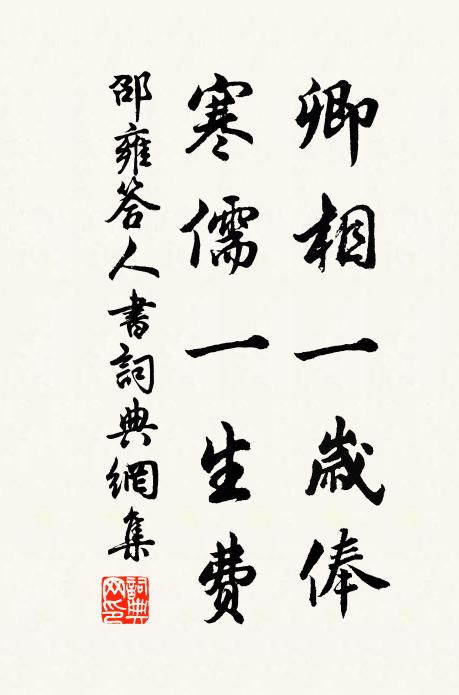 卿相一歲俸
寒儒一生費
邵雍答人書詞典網集
詞典網印